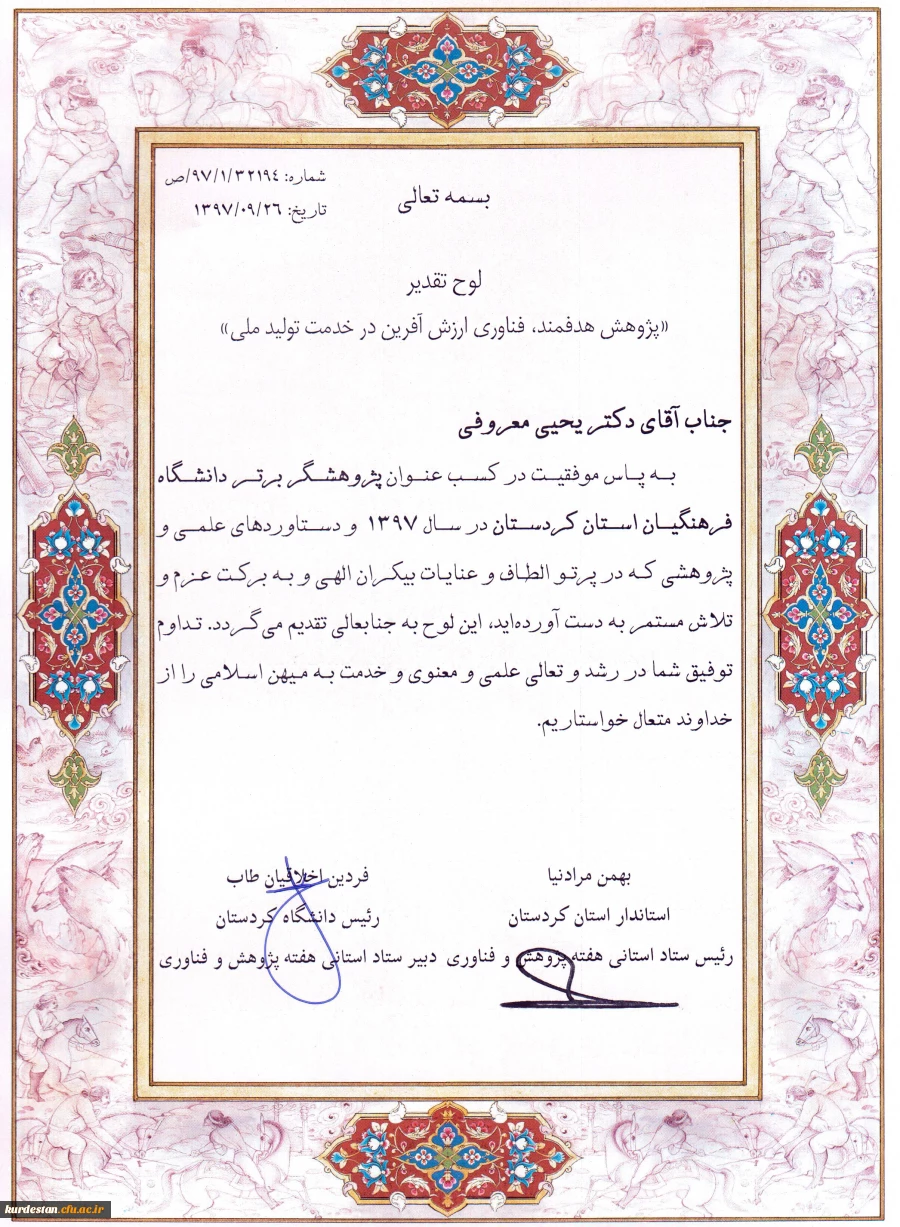 شماره: ۹۷/۱/۳۲۱۹٤/ص
بسمه تعالی
تاریخ: ۱۳۹۷/۰۹/۲٦
لوح تقدیر
«پژوهش هدفمند، فناوری ارزش آفرین در خدمت تولید ملی»
جناب آقای دکتر یحیی معروفی
به پاس موفقیت در کسب عنوان پژوهشگر برتر دانشگاه
فرهنگیان استان کردستان در سال ۱۳۹۷ و دستاوردهای علمی و
پژوهشی که در پرتو الطاف و عنایات بیکران الهی و به برکت عزم و
تلاش مستمر به دست آورده‌اید، این لوح به جنابعالی تقدیم می‌گردد. تداوم
توفیق شما در رشد و تعالی علمی و معنوی و خدمت به میهن اسلامی را از
خداوند متعال خواستاریم.
بهمن مرادنیا
استاندار استان کردستان
رئیس ستاد استانی هفته پژوهش و فناوری
فردین اخلاقیان طاب
رئیس دانشگاه کردستان
دبیر ستاد استانی هفته پژوهش و فناوری
kurdestan.cfu.ac.ir